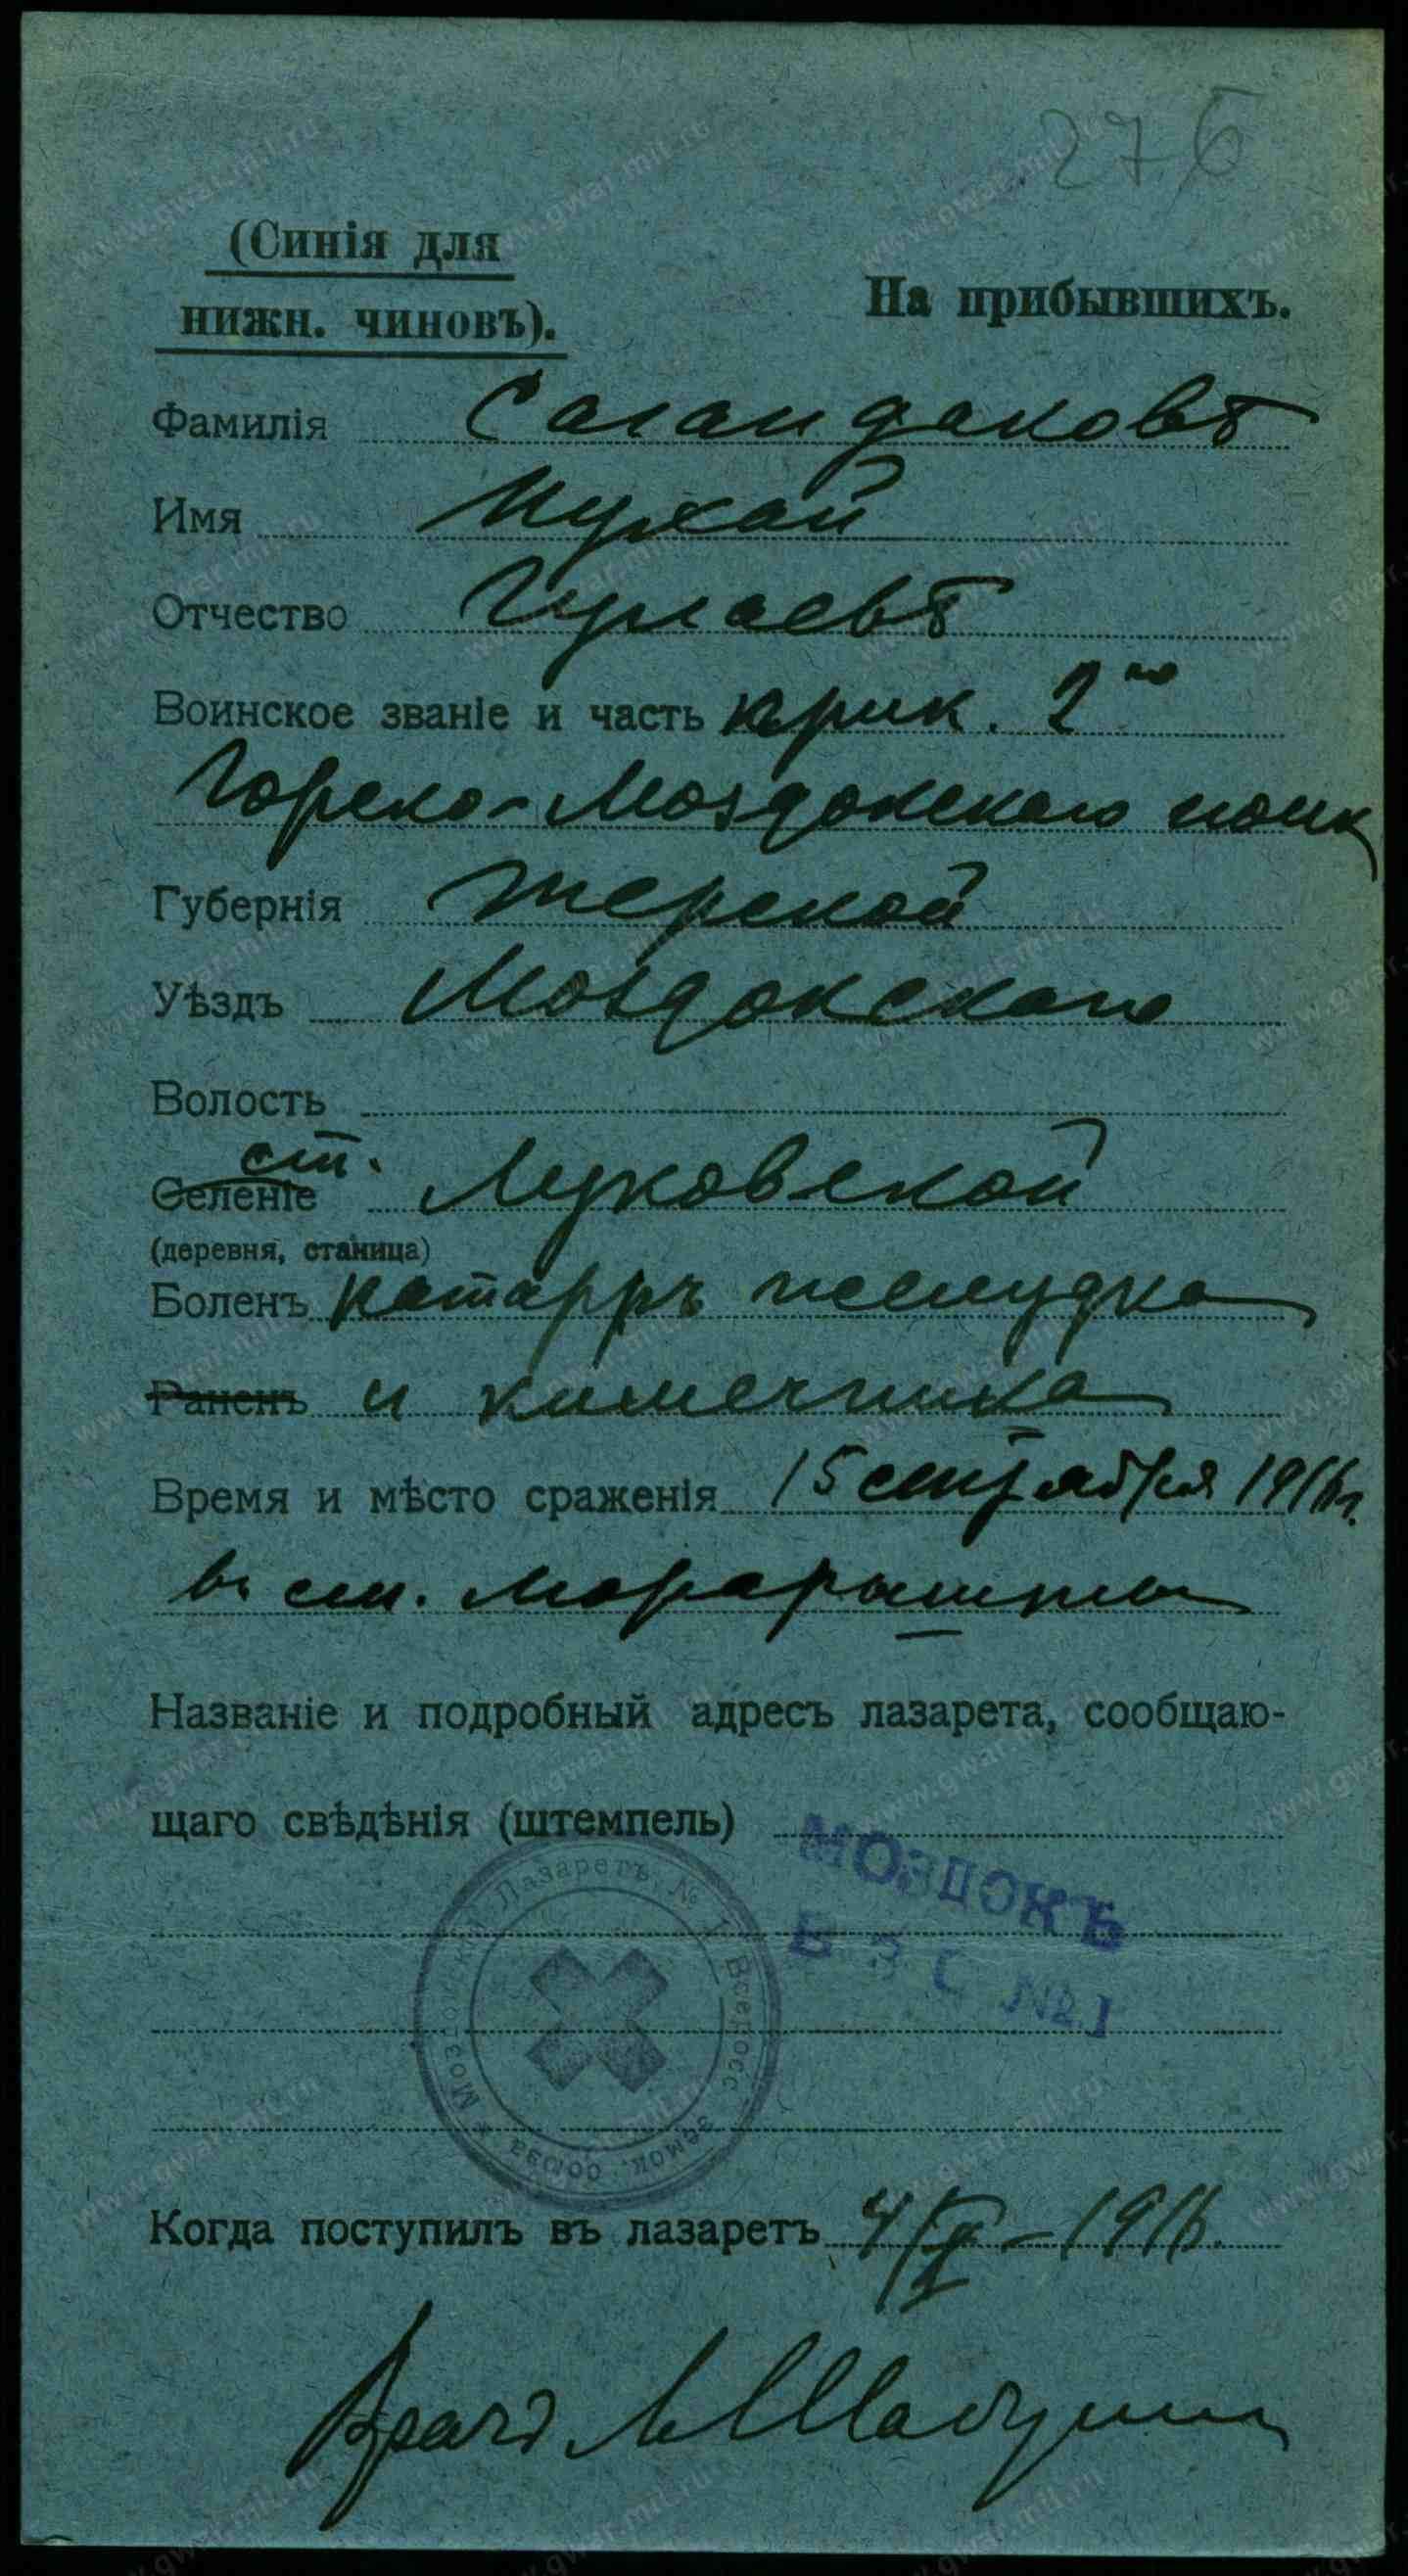 276
(Синія для
нижн. чиновъ).
На прибывшихъ.
Фамилія Саландаковъ
Имя Нухай
Отчество Гулаевъ
Воинское званіе и часть 2го
Горско-Моздокскаго полк
Губернія Терской
Уѣздъ Моздокскаго
Волость
ст.
Селеніе Луковской
(деревня, станица)
Боленъ Катарръ желудка
Раненъ и кишечника
Время и мѣсто сраженія 15 сентября 1916 г.
въ
Названіе и подробный адресъ лазарета, сообщаю-
щаго свѣдѣнія (штемпель)
МОЗДОКЪ
В З С №.1
Моздокскій Лазаретъ № 1 Всеросс. земск. союза
Когда поступилъ въ лазаретъ 4/X - 1916.
Врачъ
www.gwar.mil.ru